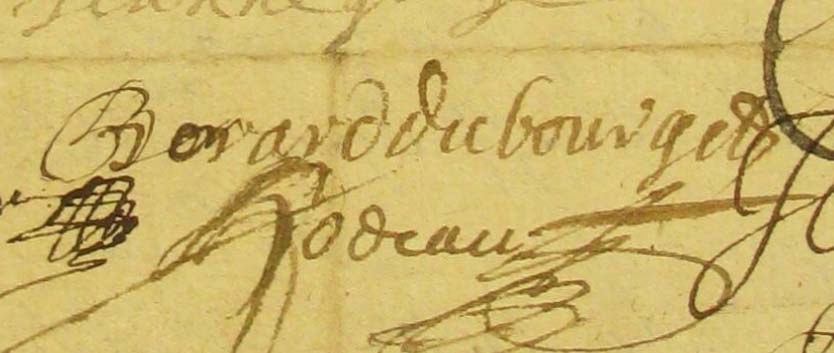 Berard du bourget
Rodeau